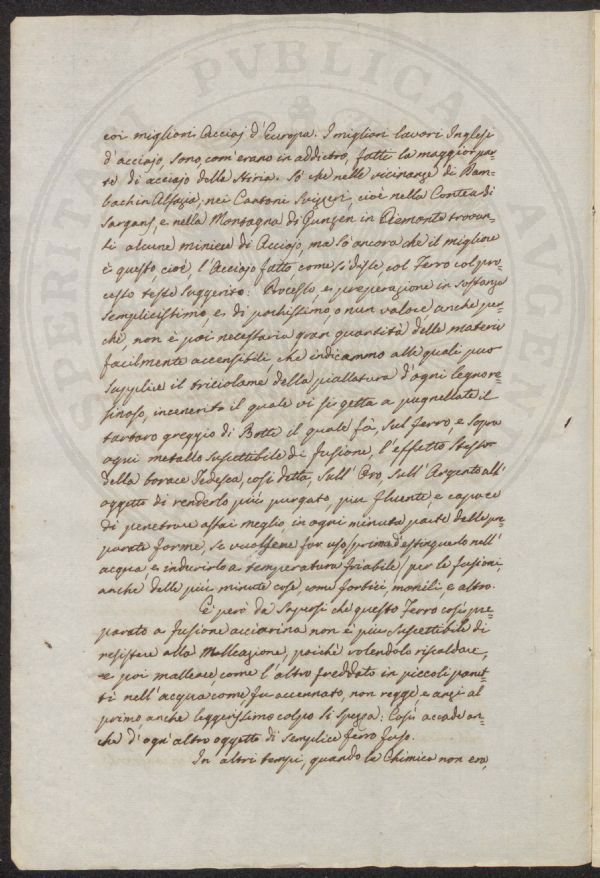 coi migliori Acciaj d'Europa. I migliori lavori Inglesi
d'acciajo, sono, com'erano in addietro, fatti la maggior par=
te di acciajo della Stiria. So che nelle vicinanze di Dam=
bach in Alsazia, nei Cantoni Svizzeri, cioè nella Contea di
Sargans, e nella Montagna di Gunzen in Piemonte trovan=
si alcune miniere di Acciajo, ma so ancora che il migliore
è questo, cioè, l'Acciajo fatto, come si disse col Ferro col pro=
cesso testè suggerito: Processo, e preparazione in sostanza
semplicissimo, e di pochissimo, o nun valore, anche per=
chè, non è poi necessaria gran quantità delle materie
facilmente accensibili che indicammo alle quali può
supplire il triciolame della piallatura d'ogni legno re=
sinoso, incenerito il quale vi si getta a pugnellate il
tartaro greggio di Botte il quale fà, sul ferro, e sopra
ogni metallo suscettibile di fusione, l'effetto stesso
della borace Tedesca, così detta, sull'Oro, sull'Argento all'
oggetto di renderlo più purgato, più fluente, e capace
di penetrare assai meglio, in ogni minuta parte delle pre=
parate forme, se vuolsene far uso prima d'estinguerlo nell'
acqua, e indurirlo a temperatura friabile, per le fusioni,
anche delle più minute cose, come forbici, monili, e altro.
E però da sapersi che questo Ferro così pre=
parato a fusione acciarina non è più suscettibile di
resistere alla Malleazione, poichè volendolo riscaldare,
e poi malleare, come l'altro freddato in piccoli panet=
ti nell'acqua come fu accennato, non regge, e anzi al
primo anche leggerissimo colpo si spezza: Così accade an=
che d'ogn'altro oggetto di semplice ferro fuso.
In altri tempi, quando la Chimica non era,
SPERITATI PVBLICAE AVGENDAE